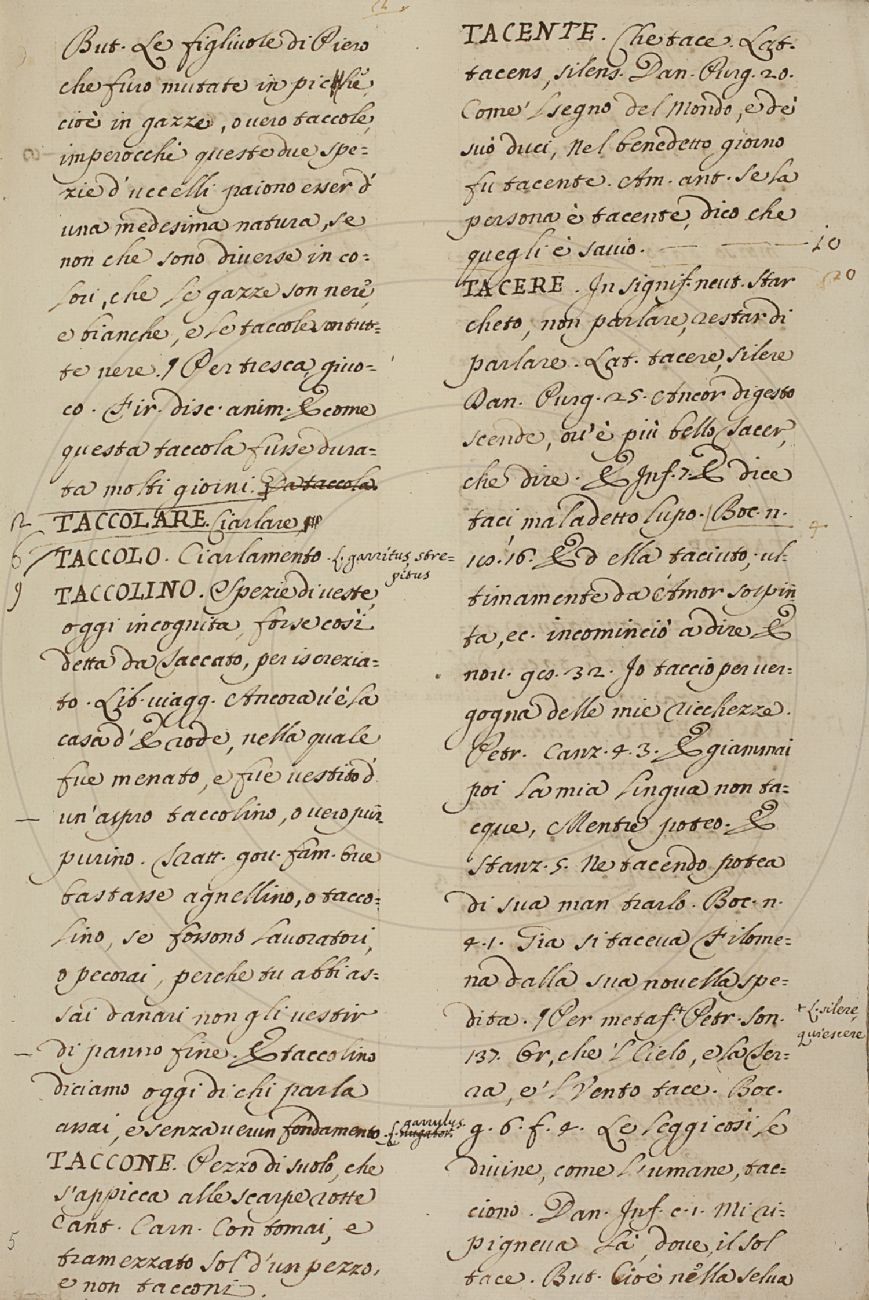 But. Le figliuole di Piero
che furo mutate in piche,
cioè in gazze, o uero taccole,
imperocchè queste due spe=
zie d'uccelli paiono esser d'
una medesima natura, se
non che sono diuerse in co=
lori, che le gazze son nere,
e bianche, e le taccole son tut=
te nere. ¶ Per tresca, giuo=
co. Fir. disc. anim. E come
questa taccola fusse dura=
ta molti giorni. Da taccola
2 TACCOLARE. Ciarlare
6 TACCOLO. Ciarlamento. L. garritus, stre=
pitus
9 TACCOLINO. Spezie di ueste,
oggi incognita, forse così
detta da Saccato, per iscrezia=
to. Lib. uiagg. Ancora u'è la
casa d'Erode, nella quale
fue menato, e fue uestito d'
un'aspro taccolino, o uero pur
purino. Tratt. gou. fam. Gue
bastasse agnellino, o tacco=
lino, se fossono lauoratori,
o pecorai, perche tu abbi as=
sai danari non gli uestir
di panno fine. E taccolino
diciamo oggi di chi parla
assai, e senza uerun fondamento. L. garrulus.
nugator.
TACCONE. Pezzo di suolo, che
s'appicca alle scarpe rotte
Cant. Carn. Con tomai, e
5
tramezzato sol d'un pezzo,
e non tacconi.
TACENTE. Che tace. Lat.
tacens, silens. Dan. Purg. 20.
Come 'l segno del Mondo, e de'
suò duci, Nel benedetto giorno
fu tacente. Am. ant. Se la
persona è tacente, dico che
quegli è sauio. 10
20
TACERE. In signif. neut. Star
cheto, non parlare, restar di
parlare. Lat. tacere, silere
Dan. Purg. 25. Ancor digesto
scende, ou'è più bello Tacer,
che dire. E Inf. 7. E dice
taci maladetto lupo. Boc. n.
4
16. Ed ella taciuto, ul=
timamente da Amor sospin
ta, ec. incominciò a dire E
nou. 32. Io taccio per uer=
gogna delle mie ricchezze.
Petr. Canz. 4. 3. E giammai
poi La mia lingua non ta=
cque, Mentre poteo. E
Stanz. 5. Ne tacendo potea
di sua man trarlo. Boc. n.
4. 1. Gia si taceua Filome=
na dalla sua nouella spe=
dita. ¶ Per metaf. Petr. Son.
+ L. silere,
quiescere
137. Or, che 'l Cielo, e la Ter=
ra, e 'l Vento tace. Boc.
g. 6. f. 4. Le leggi così le
diuine, come l'umane, tac=
ciono. Dan. Inf. c. 1. Mi ri=
pigneua là, doue, il sol
tace. But. Cioè nella selua